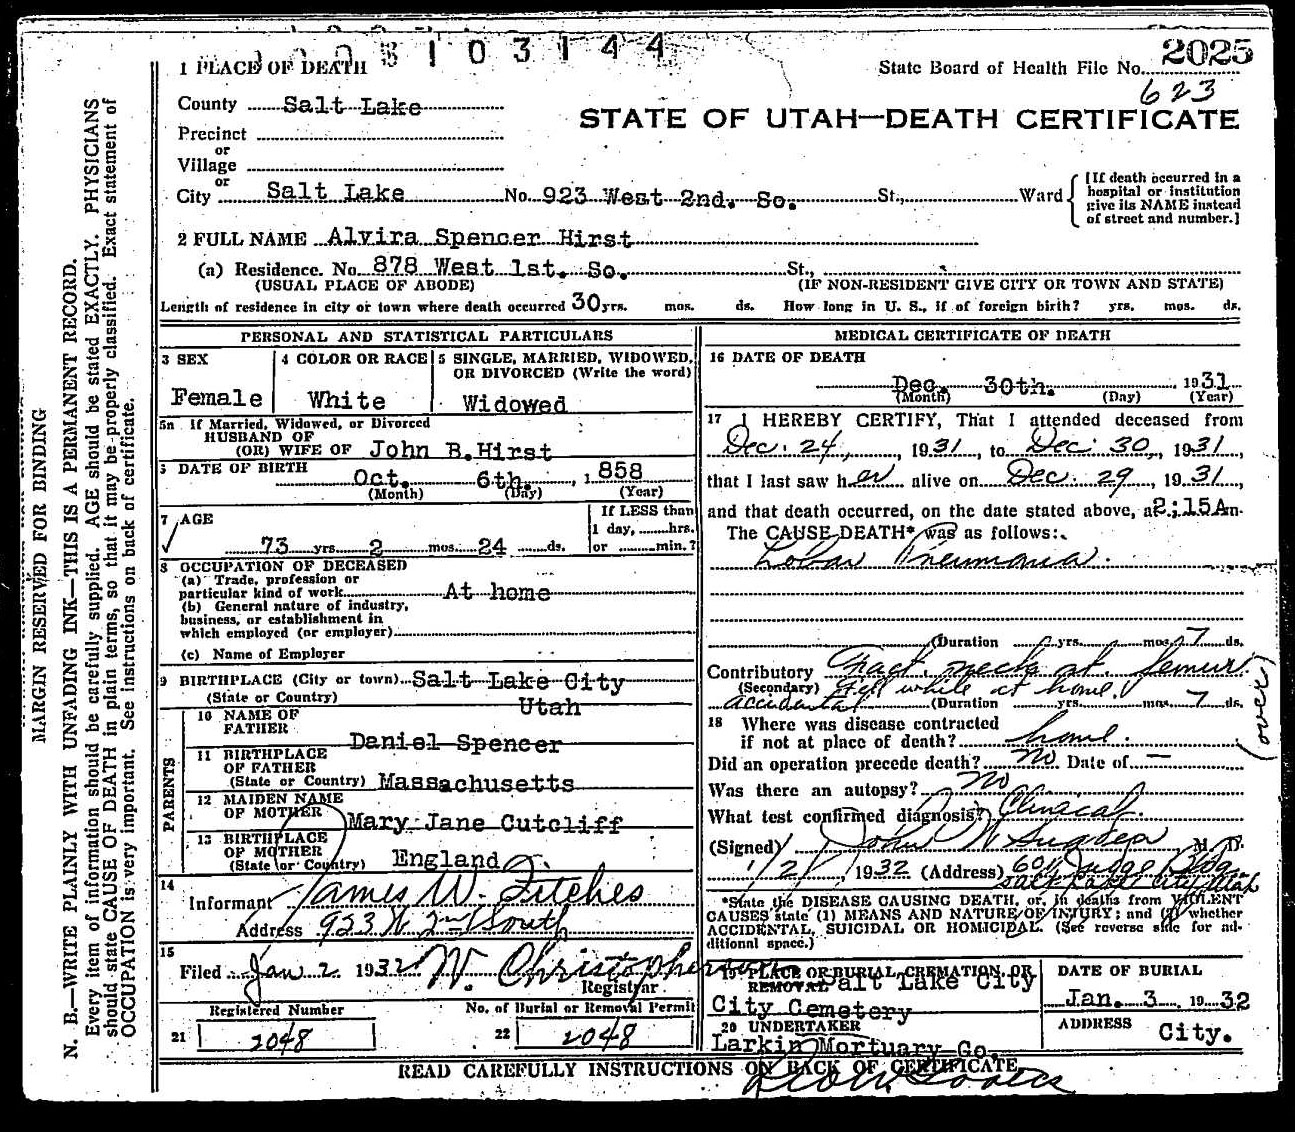 3103144
2025
1 PLACE OF DEATH
State Board of Health File No.
623
County Salt Lake
STATE OF UTAH—DEATH CERTIFICATE
Precinct
or
Village
or
City Salt Lake No. 923 West 2nd. So. St., Ward
[If death occurred in a
hospital or institution
give its NAME instead
of street and number.]
2 FULL NAME Alvira Spencer Hirst
(a) Residence. No. 878 West 1st. So. St.,
(USUAL PLACE OF ABODE) (IF NON-RESIDENT GIVE CITY OR TOWN AND STATE)
Length of residence in city or town where death occurred 30 yrs. mos. ds. How long in U. S., if of foreign birth? yrs. mos. ds.
PERSONAL AND STATISTICAL PARTICULARS
3 SEX
Female
4 COLOR OR RACE
White
5 SINGLE, MARRIED, WIDOWED,
OR DIVORCED (Write the word)
Widowed
5a If Married, Widowed, or Divorced
HUSBAND OF
(OR) WIFE OF John B. Hirst
DATE OF BIRTH
Oct. 6th. , 1858
(Month) (Day) (Year)
7 AGE
73 yrs. 2 mos. 24 ds.
If LESS than
1 day, hrs.
or min.?
8 OCCUPATION OF DECEASED
(a) Trade, profession or
particular kind of work At home
(b) General nature of industry,
business, or establishment in
which employed (or employer)
(c) Name of Employer
9 BIRTHPLACE (City or town) Salt Lake City
(State or Country) Utah
PARENTS
10 NAME OF
FATHER
Daniel Spencer
11 BIRTHPLACE
OF FATHER
(State or Country) Massachusetts
12 MAIDEN NAME
OF MOTHER
Mary Jane Cutcliff
13 BIRTHPLACE
OF MOTHER
(State or Country) England
14
Informant James W. Fitches
Address 923 W 2nd South
15
Filed Jan 2 1932 W. Christopherson
Registrar
Registered Number
21 2048
No. of Burial or Removal Permit
22 2048
MEDICAL CERTIFICATE OF DEATH
16 DATE OF DEATH
Dec. 30th. , 1931
(Month) (Day) (Year)
17 I HEREBY CERTIFY, That I attended deceased from
Dec. 24, 1931, to Dec. 30, 1931,
that I last saw her alive on Dec. 29, 1931,
and that death occurred, on the date stated above, at 2:15A m.
The CAUSE DEATH* was as follows:
Lobar Pneumonia.
(Duration yrs. mos. 7 ds.
Contributory Fract. neck of femur.
(Secondary) Fell while at home.
accidental (Duration yrs. mos. 7 ds.
(over)
18 Where was disease contracted
if not at place of death? home.
Did an operation precede death? no Date of —
Was there an autopsy? No
What test confirmed diagnosis? Clinical
(Signed) John W Sugden M. D.
1/2/, 1932 (Address) 604 Judge Bldg.
Salt Lake City Utah
*State the DISEASE CAUSING DEATH, or, in deaths from VIOLENT
CAUSES state (1) MEANS AND NATURE OF INJURY; and (2) whether
ACCIDENTAL, SUICIDAL OR HOMICIDAL. (See reverse side for ad-
ditional space.)
19 PLACE OR BURIAL, CREMATION, OR
REMOVAL Salt Lake City
City Cemetery
DATE OF BURIAL
Jan. 3 1932
20 UNDERTAKER
Larkin Mortuary Co.
ADDRESS
City.
READ CAREFULLY INSTRUCTIONS ON BACK OF CERTIFICATE
MARGIN RESERVED FOR BINDING
N. B.—WRITE PLAINLY WITH UNFADING INK—THIS IS A PERMANENT RECORD.
Every item of information should be carefully supplied. AGE should be stated EXACTLY. PHYSICIANS
should state CAUSE OF DEATH in plain terms, so that it may be properly classified. Exact statement of
OCCUPATION is very important. See instructions on back of certificate.